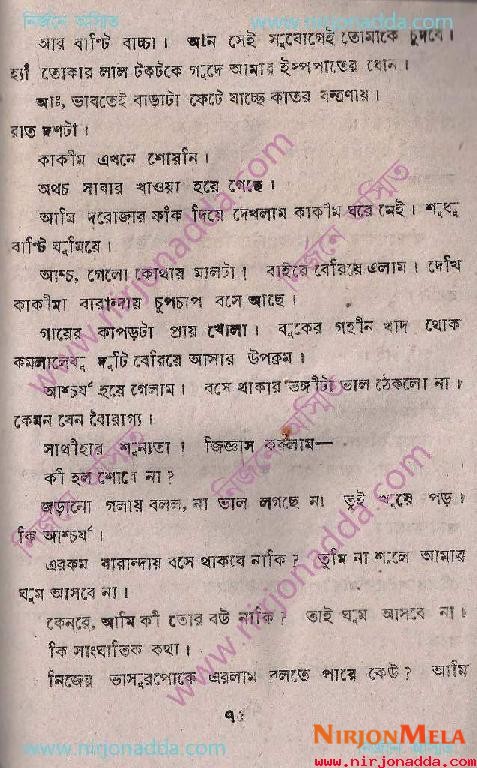 নির্জনে অস্মিত www.nirjonadda.com
আর বাপ্টি বাচ্চা। আন সেই সুযোগেই তোমাকে চুদবে।
হ্যাঁ তোকার লাল টকটকে গুদে আমার ইস্পাতের ধোন।
আঃ, ভাবতেই বাড়াটা ফেটে যাচ্ছে কাতর যন্ত্রণায়।
রাত দশটা।
কাকীম এখনে শোয়নি।
অথচ সাবার খাওয়া হয়ে গেছে।
আমি দরোজার ফাঁক দিয়ে দেখলাম কাকীম ঘরে নেই। শুধু
বাপ্টি ঘুমিয়ে।
আশ্চ, গেলো কোথায় মালটা। বাইরে বেরিয়ে এলাম। দেখি
কাকীমা বারান্দায় চুপচাপ বসে আছে।
গায়ের কাপড়টা প্রায় খোলা। বুকের গহীন খাদ থোক
কমলালেবু দুটি বেরিয়ে আসার উপক্রম।
আশ্চর্য হয়ে গেলাম। বসে থাকার ভঙ্গীটা ভাল ঠেকলো না।
কেমন যেন বৈরাগ্য।
সাথীহার শূন্যতা। জিজ্ঞাস করলাম—
কী হল শোবে না?
জড়ানো গলায় বলল, না ভাল লগছে না। তুই শুয়ে পড়।
কি আশ্চর্য।
এরকম বারান্দায় বসে থাকবে নাকি? তুমি না শুলে আমার
ঘুম আসবে না।
কেনরে, আমি কী তোর বউ নাকি? তাই ঘুম আসবে না।
কি সাংঘাতিক কথা।
নিজের ভাসুরপোকে এরলাম বলতে পারে কেউ? আমি
NIRJONMELA
www.nirjonadda.com নির্জনে অস্মিত www.nirjonadda.com